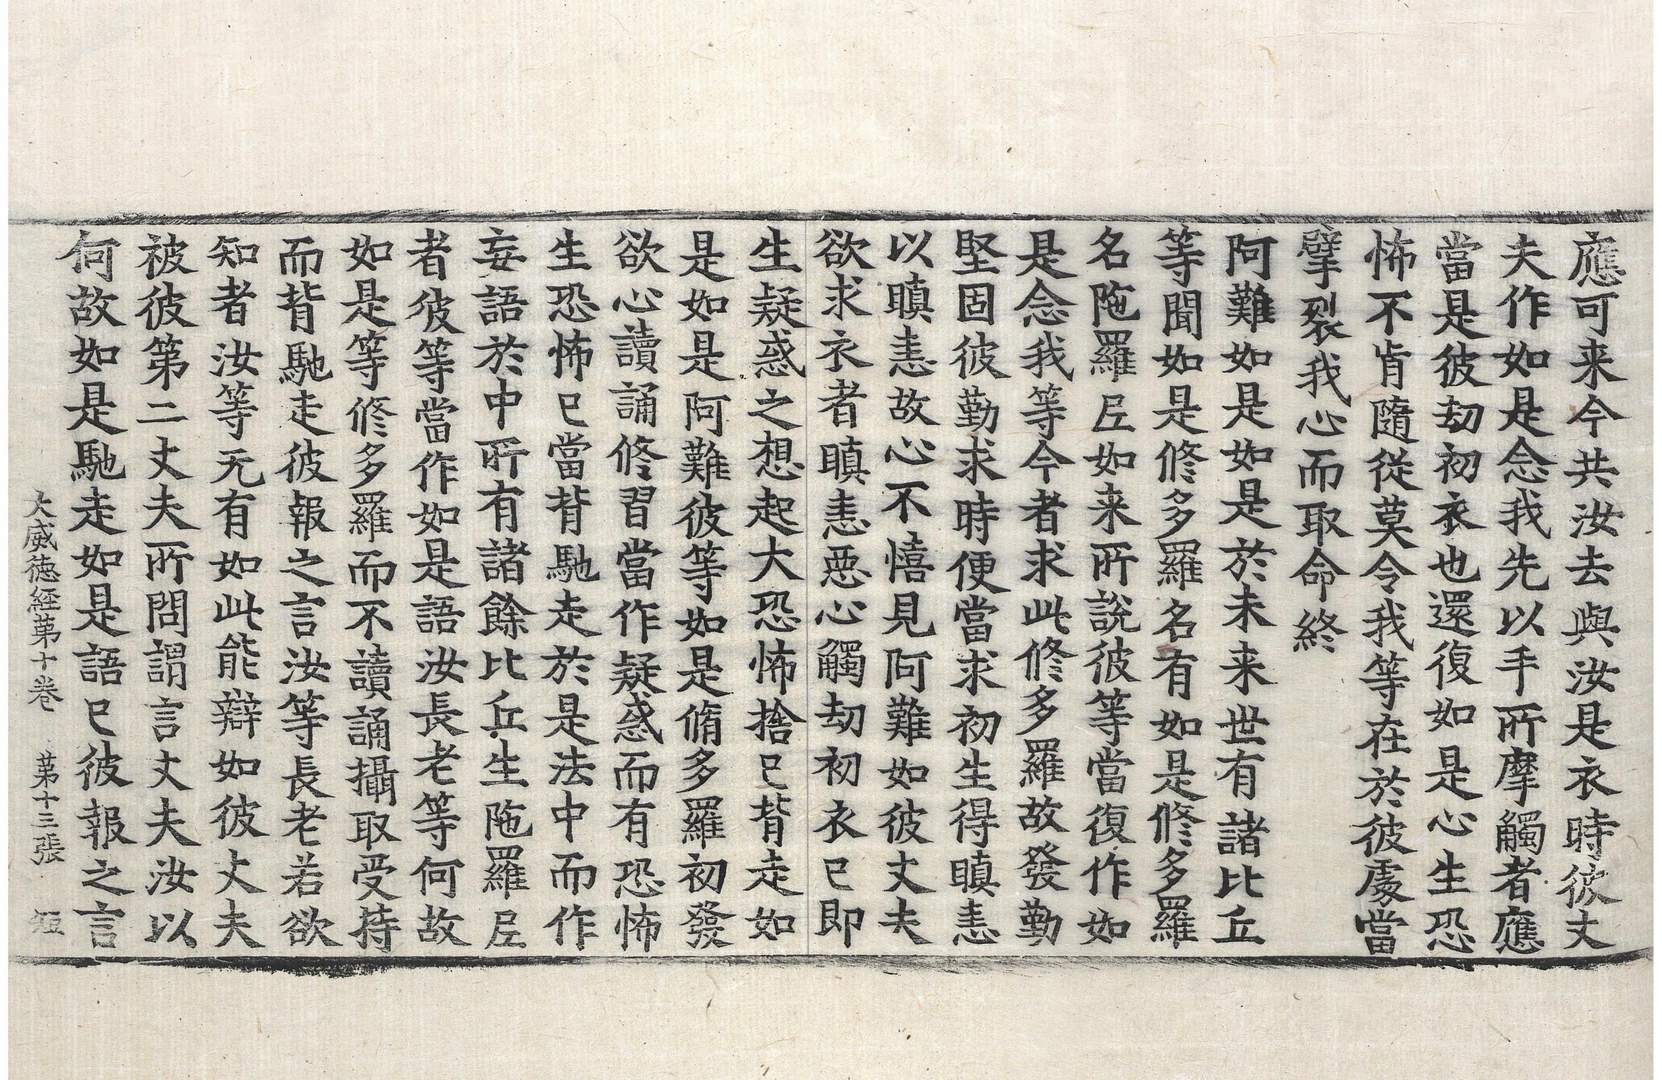 應可来今共汝去與汝是衣時彼丈
夫作如是念我先以手所摩觸者應
當是彼刧初衣也還復如是心生恐
怖不肯隨從莫令我等在於彼處當
擘裂我心而取命終
阿難如是如是於未来世有諸比丘
等聞如是修多羅名有如是修多羅
名陁羅𡰱如来所說彼等當復作如
是念我等今者求此修多羅故發勤
堅固彼勤求時便當求初生得瞋恚
以瞋恚故心不憘見阿難如彼丈夫
欲求衣者瞋恚惡心觸刧初衣已即
生疑惑之想起大恐怖捨已背走如
是如是阿難彼等如是脩多羅初發
欲心讀誦修習當作疑惑而有恐怖
生恐怖已當背馳走於是法中而作
妄語於中所有諸餘比丘生陁羅𡰱
者彼等當作如是語汝長老等何故
如是等修多羅而不讀誦攝取受持
而背馳走彼報之言汝等長老若欲
知者汝等无有如此能辯如彼丈夫
被彼第二丈夫所問謂言丈夫汝以
何故如是馳走如是語已彼報之言
大威徳経第十卷 第十三張 短